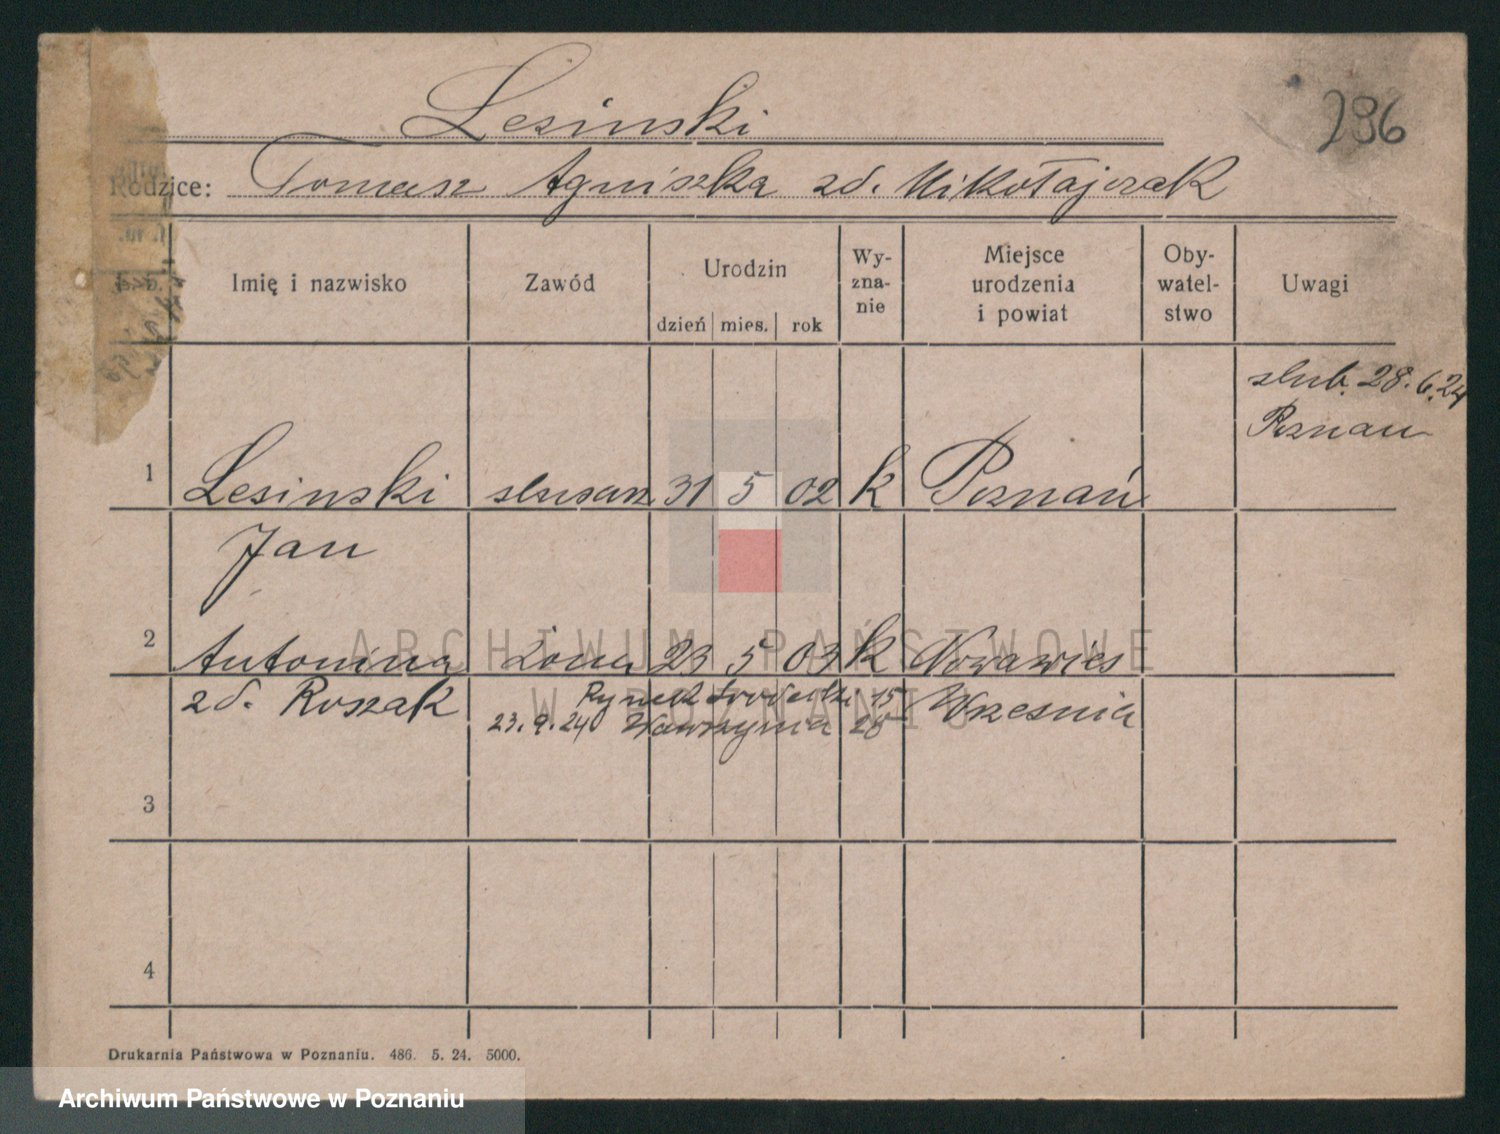 Lesinski
296
Rodzice: Tomasz Agniszka zd. Mikołajczak
Imię i nazwisko
Zawód
Urodzin
dzień mies. rok
Wy-
zna-
nie
Miejsce
urodzenia
i powiat
Oby-
watel-
stwo
Uwagi
slub. 28.6.24
Poznan
1 Lesinski slusarz 31 5 02 k Poznań
Jan
2 Antonina żona 23 5 03 k Nowawies
zd. Roszak Rynek Srodecki 15 Wrzesnia
23.9.24 Wawrzynia 28
3
4
Drukarnia Państwowa w Poznaniu. 486. 5. 24. 5000.
ARCHIWUM PAŃSTWOWE
W POZNANIU
Archiwum Państwowe w Poznaniu